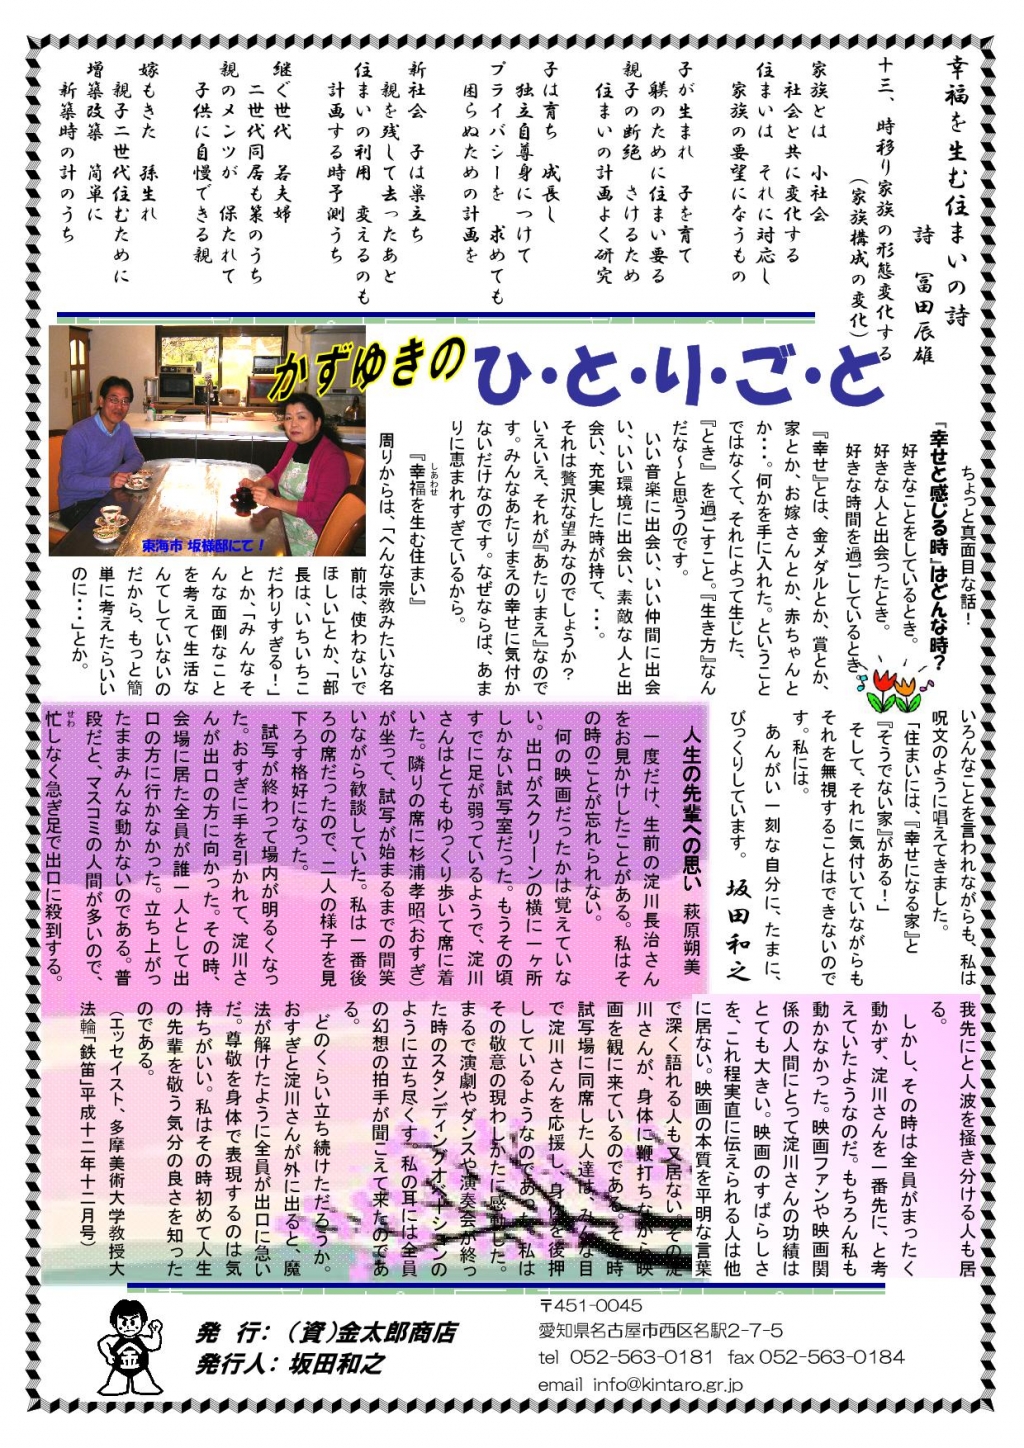 幸福を生む住まいの詩
詩　冨田辰雄
十三、時移り家族の形態変化する
（家族構成の変化）
家族とは　小社会
社会と共に変化する
住まいは　それに対応し
家族の要望になうもの
子が生まれ　子を育て
躾のために住まい要る
親子の断絶　さけるため
住まいの計画よく研究
子は育ち　成長し
独立自尊身につけて
プライバシーを　求めても
困らぬための計画を
新社会　子は巣立ち
親を残して去ったあと
住まいの利用　変えるのも
計画する時予測うち
継ぐ世代　若夫婦
二世代同居も策のうち
親のメンツが　保たれて
子供に自慢できる親
嫁もきた　孫生れ
親子二世代住むために
増築改築　簡単に
新築時の計のうち
かずゆきの
ひ・と・り・ご・と
東海市 坂様邸にて！
ちょっと真面目な話！
『幸せと感じる時』はどんな時？
好きなことをしているとき。
好きな人と出会ったとき。
好きな時間を過ごしているとき。
『幸せ』とは、金メダルとか、賞とか、
家とか、お嫁さんとか、赤ちゃんと
か・・・。何かを手に入れた。ということ
ではなくて、それによって生じた、
『とき』を過ごすこと。『生き方』なん
だな～と思うのです。
いい音楽に出会い、いい仲間に出会
い、いい環境に出会い、素敵な人と出
会い、充実した時が持て、・・・。
それは贅沢な望みなのでしょうか？
いえいえ、それが『あたりまえ』なので
す。みんなあたりまえの幸せに気付か
ないだけなのです。なぜならば、あま
りに恵まれすぎているから。
しあわせ
『幸福を生む住まい』
周りからは、「へんな宗教みたいな名
前は、使わないで
ほしい」とか、「部
長は、いちいちこ
だわりすぎる！」
とか、「みんなそ
んな面倒なこと
を考えて生活な
んてしていないの
だから、もっと簡
単に考えたらいい
のに・・・」とか。
いろんなことを言われながらも、私は
呪文のように唱えてきました。
「住まいには、『幸せになる家』と
『そうでない家』がある！」
そして、それに気付いていながらも
それを無視することはできないので
す。私には。
あんがい一刻な自分に、たまに、
びっくりしています。
坂田和之
人生の先輩への思い　萩原朔美
一度だけ、生前の淀川長治さん
をお見かけしたことがある。私はそ
の時のことが忘れられない。
何の映画だったかは覚えていな
い。出口がスクリーンの横に一ヶ所
しかない試写室だった。もうその頃
すでに足が弱っているようで、淀川
さんはとてもゆっくり歩いて席に着
いた。隣りの席に杉浦孝昭（おすぎ）
が坐って、試写が始まるまでの間笑
いながら歓談していた。私は一番後
ろの席だったので、二人の様子を見
下ろす格好になった。
試写が終わって場内が明るくなっ
た。おすぎに手を引かれて、淀川さ
んが出口の方に向かった。その時、
会場に居た全員が誰一人として出
口の方に行かなかった。立ち上がっ
たままみんな動かないのである。普
段だと、マスコミの人間が多いので、
せわ
忙しなく急ぎ足で出口に殺到する。
我先にと人波を掻き分ける人も居
る。
しかし、その時は全員がまったく
動かず、淀川さんを一番先に、と考
えていたようなのだ。もちろん私も
動かなかった。映画ファンや映画関
係の人間にとって淀川さんの功績は
とても大きい。映画のすばらしさ
を、これ程実直に伝えられる人は他
に居ない。映画の本質を平明な言葉
で深く語れる人も又居ない。その淀
川さんが、身体に鞭打ちながら映
画を観に来ているのである。その時
試写場に同席した人達は、みんな目
で淀川さんを応援し、身体を後押
ししているようなのであった。私は
その敬意の現わしかたに感動した。
まるで演劇やダンスや演奏会が終っ
た時のスタンディングオベーションの
ように立ち尽くす。私の耳には全員
の幻想の拍手が聞こえて来たのであ
る。
どのくらい立ち続けただろうか。
おすぎと淀川さんが外に出ると、魔
法が解けたように全員が出口に急い
だ。尊敬を身体で表現するのは気
持ちがいい。私はその時初めて人生
の先輩を敬う気分の良さを知った
のである。
（エッセイスト、多摩美術大学教授大
法輪「鉄笛」平成十二年十二月号）
金
発　行：（資）金太郎商店
発行人：坂田和之
〒451-0045
愛知県名古屋市西区名駅2-7-5
tel 052-563-0181 fax 052-563-0184
email info@kintaro.gr.jp